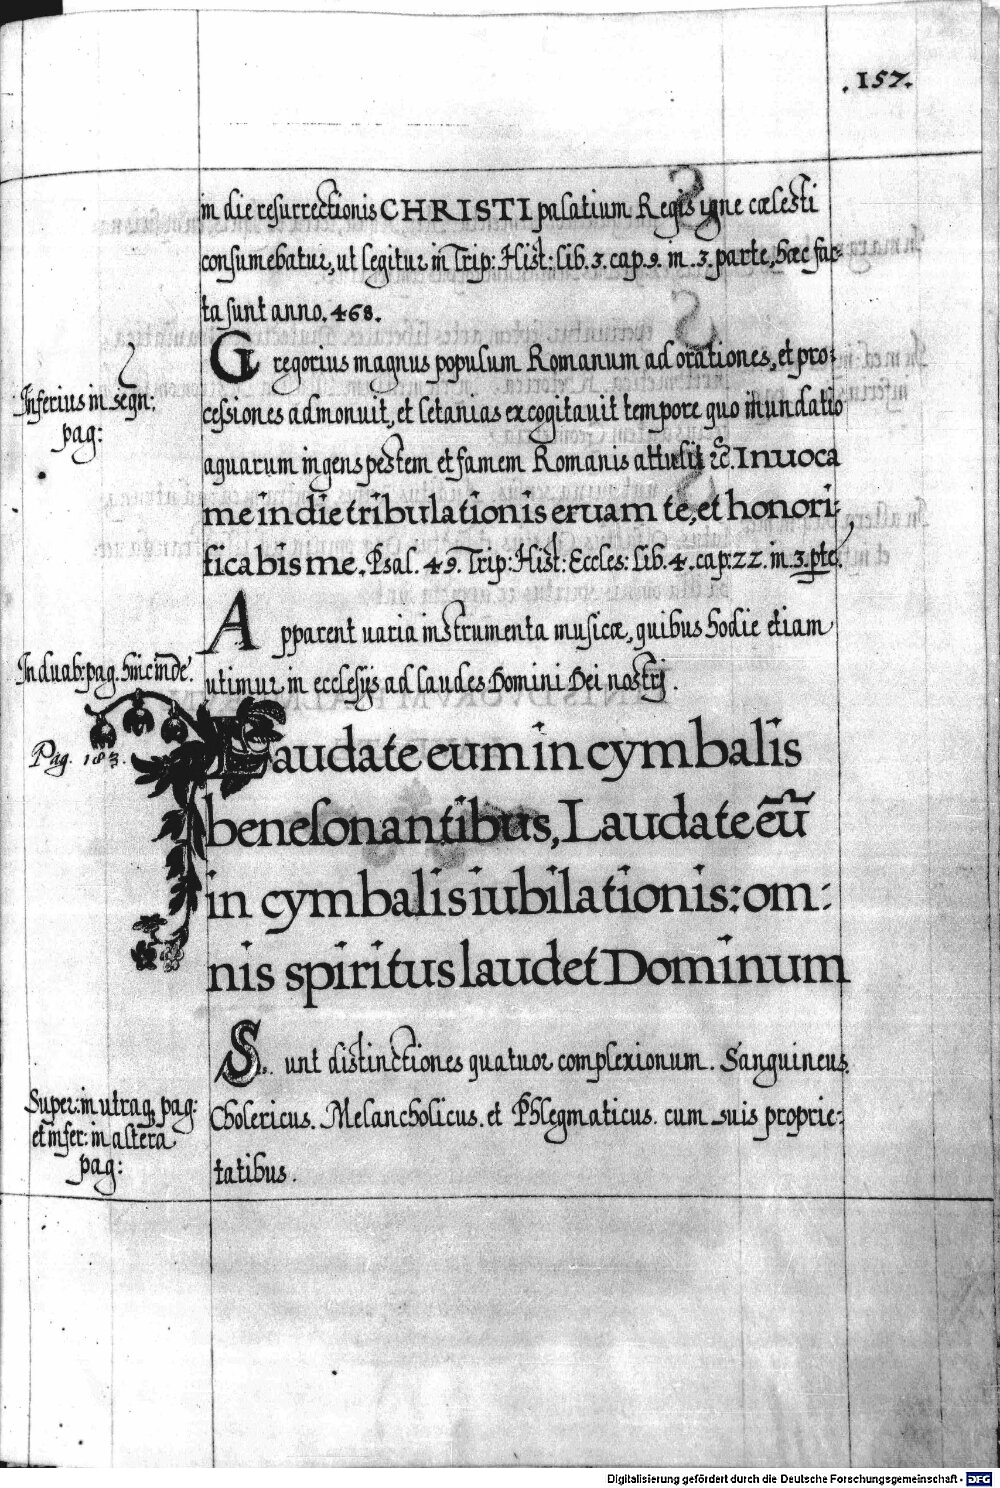 .157.
in die resurrectionis CHRISTI palatium Regis igne cælesti
consumebatur, ut legitur in Trip: Hist: lib. 3. cap. 9. in .3. parte, hæc fac-
ta sunt anno. 468.
Gregorius magnus populum Romanum ad orationes, et pro:
Inferius in segn:
pag:
cessiones admonuit, et letanias excogitauit tempore quo inundatio
aquarum ingens pestem et famem Romanis attulit &c. Inuoca
me in die tribulationis eruam te, et honori:
ficabis me. Psal. 49. Trip: Hist: Eccles: Lib. 4. cap: 22. in 3. pte.
Apparent uaria instrumenta musicæ, quibus hodie etiam
In duab: pag. hinc inde.
utimur in ecclesijs ad laudes Domini Dei nostrj.
Pag. 183.
Laudate eum in cymbalis
benesonantibus, Laudate eū
in cymbalis iubilationis: om:
nis spiritus laudet Dominum
Sunt distinctiones quatuor complexionum. Sanguineus.
Super: in utraq; pag:
et infer: in altera
pag:
Cholericus. Melancholicus. et Phlegmaticus. cum suis proprie:
tatibus.
Digitalisierung gefördert durch die Deutsche Forschungsgemeinschaft - DFG